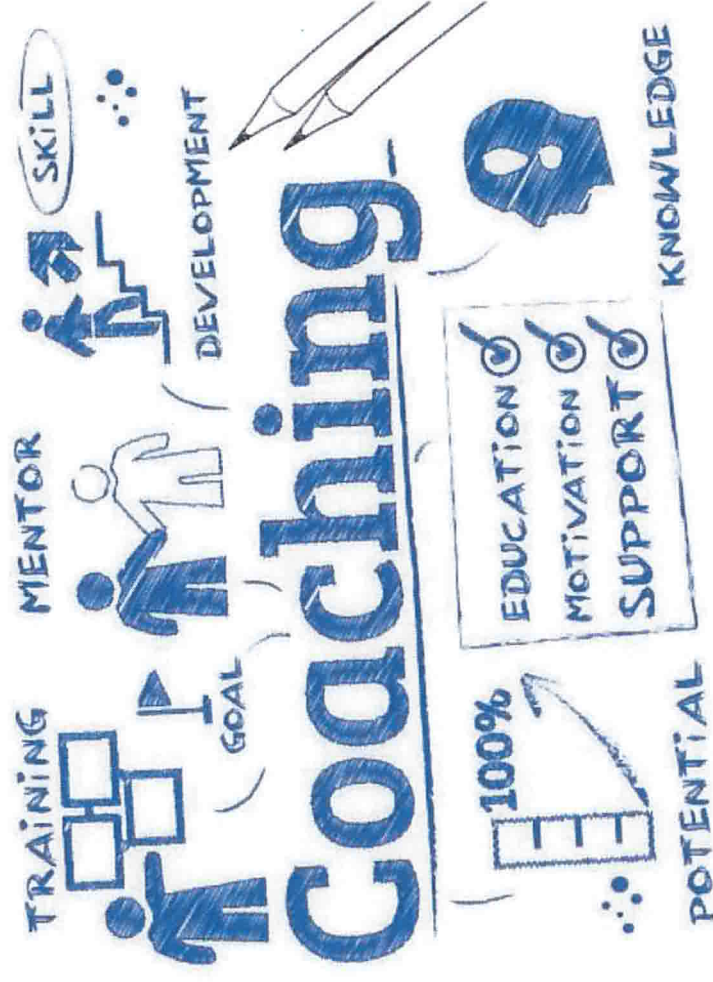 TRAiNiNG
MENTOR
SKiLL
GOAL
DEVELOPMENT
Coaching
100%
EDUCATiON
MOTiVATiON
SUPPORT
POTENTiAL
KNOWLEDGE